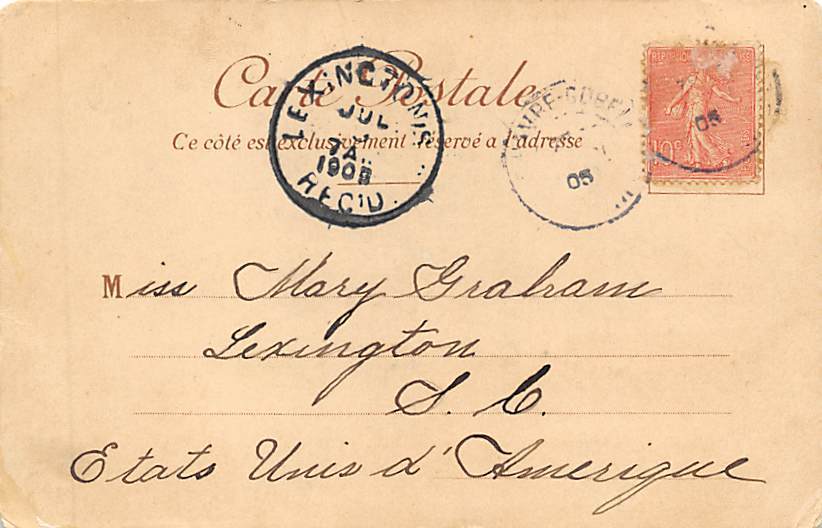 Carte Postale
Ce côté est exclusivement réservé a l'adresse
LEXINGTON
JUL
7A
1905
REC'D.
05
REPUBLIQUE
10c
05
Miss Mary Graham
Lexington
S. C.
Etats Unis d'Amerique